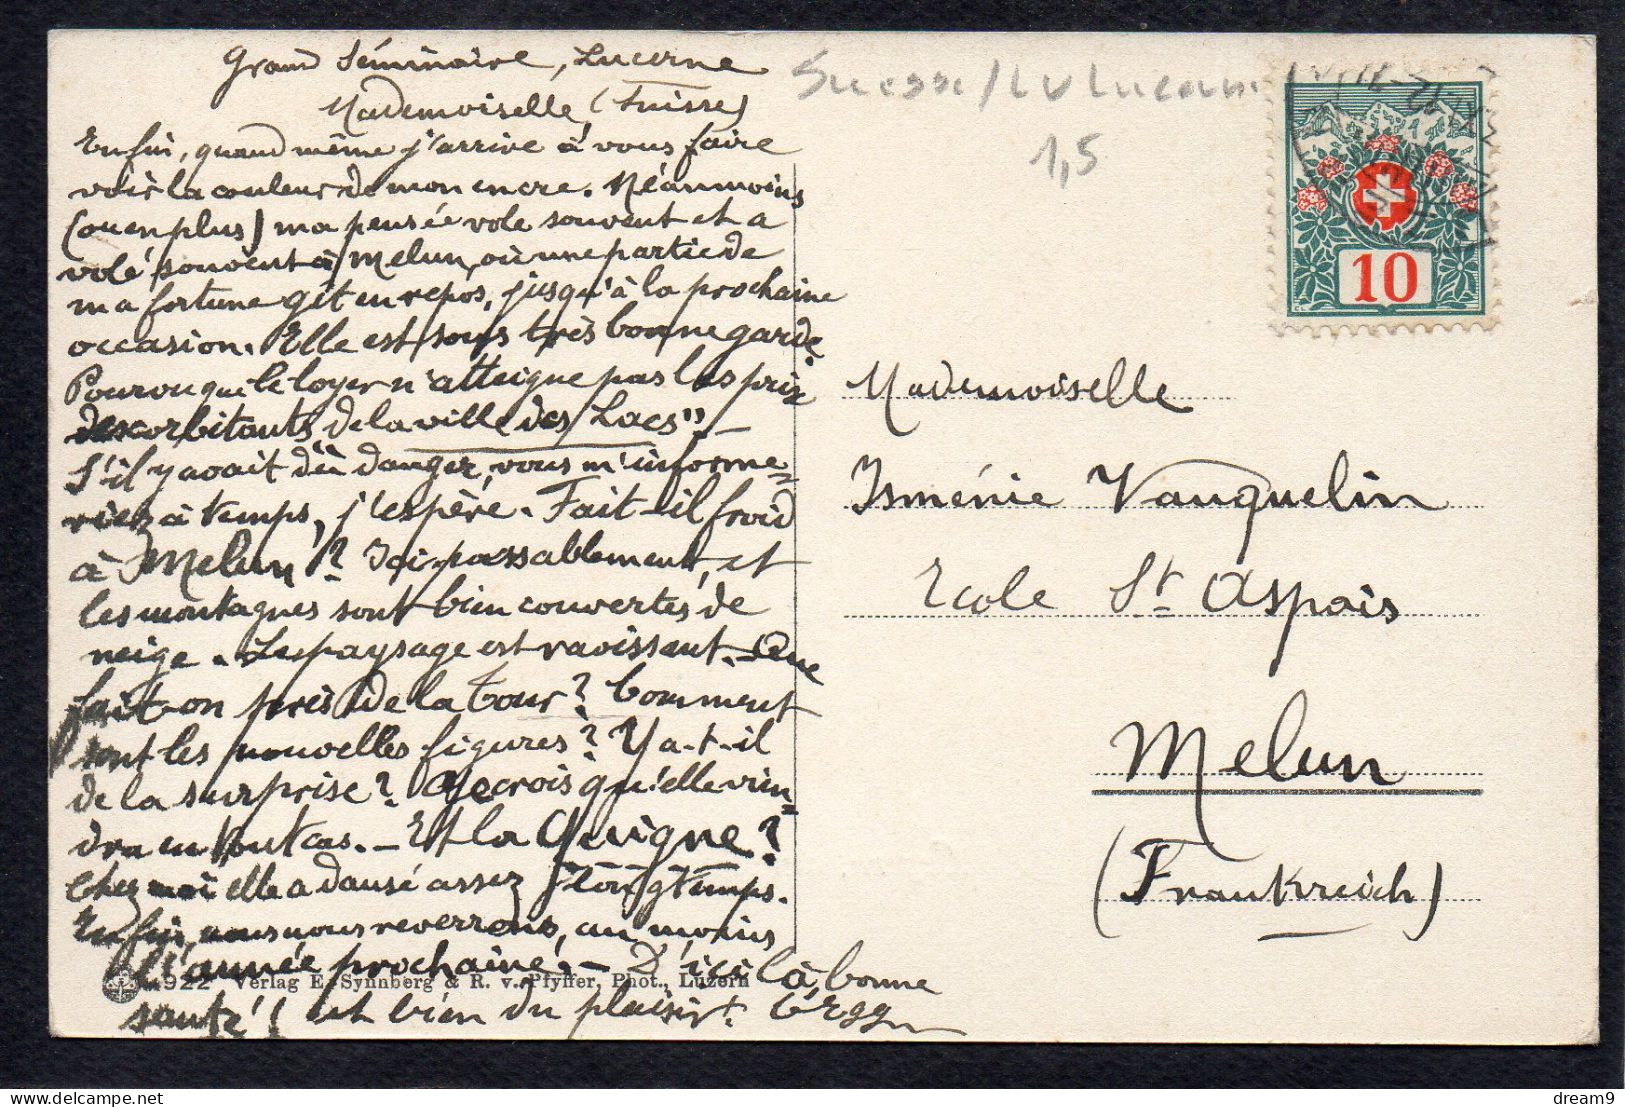 Grand Séminaire, Lucerne
Mademoiselle, (Suisse)
Enfin, quand même j'arrive à vous faire
voir la couleur de mon encre. Néanmoins
(ou en plus) ma pensée vole souvent et a
volé souvent à Melun, où une partie de
ma fortune gît en repos, jusqu'à la prochaine
occasion. Elle est sous très bonne garde.
Pourvu que le loyer n'atteigne pas les prix
exorbitants de la ville des Lacs". —
S'il y avait du danger, vous m'informe=
riez à temps, j'espère. Fait-il froid
à Melun? Ici passablement, et
les montagnes sont bien couvertes de
neige. Le paysage est ravissant. — Que
fait-on près de la Tour? Comment
sont les nouvelles figures? Y a-t-il
de la surprise? Je crois qu'elle vien=
dra en tout cas. — Et la Guigne?
Chez moi elle a dansé assez longtemps.
Enfin, nous nous reverrons, au moins
l'année prochaine. — D'ici là, bonne
santé! et bien du plaisir. C. Egg
922 Verlag E. Synnberg & R. v. Pfyffer, Phot., Luzern
1,5
10
Mademoiselle
Isménie Vauquelin
Ecole St Aspais
Melun
(Frankreich)
dream9